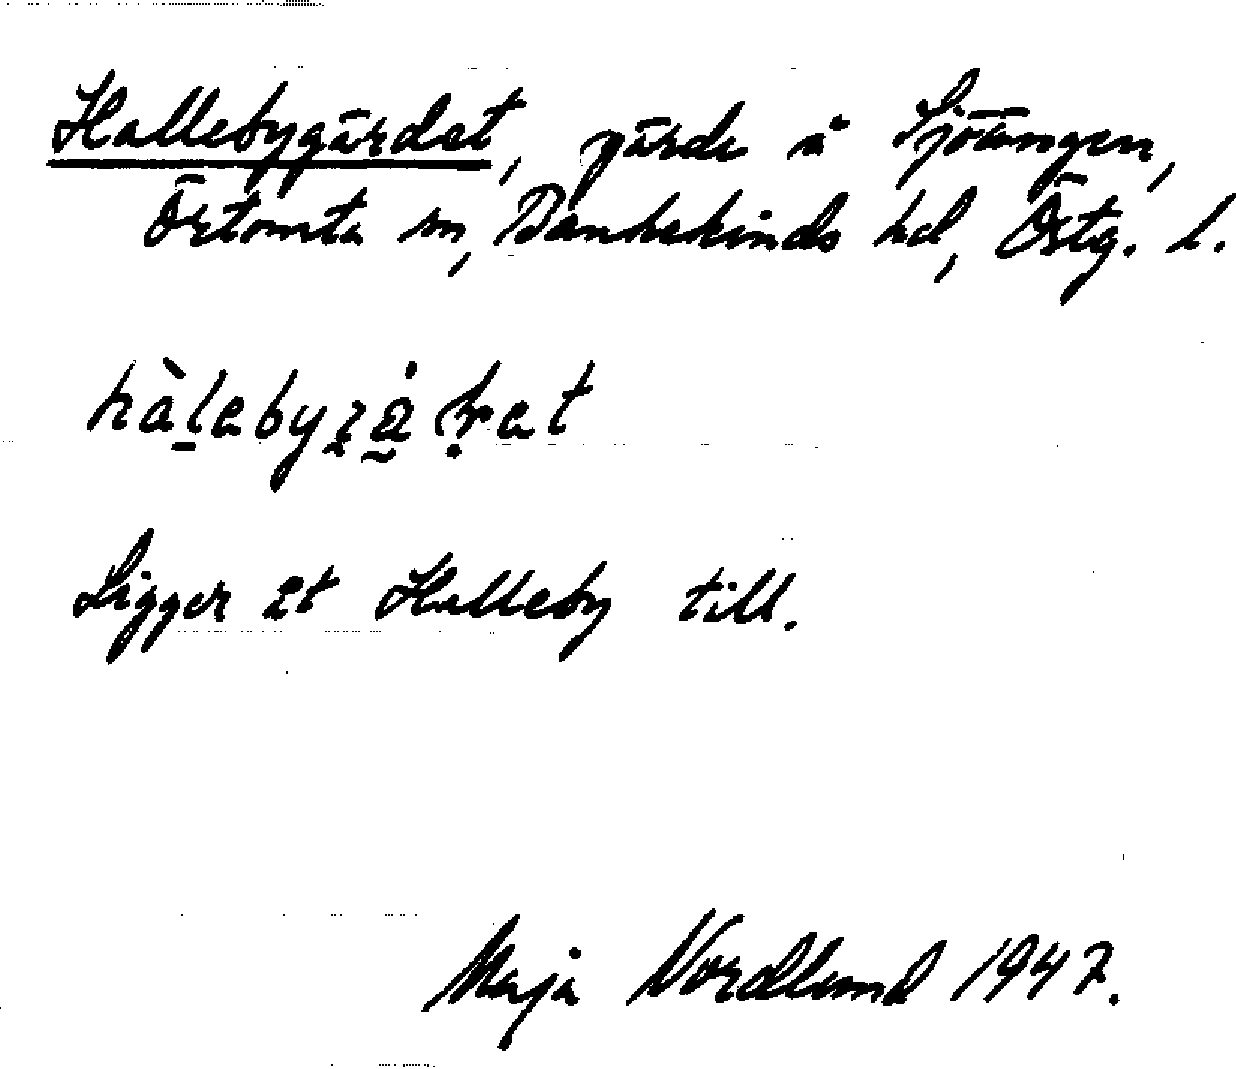 Hallebygärdet, gärde å Sjöängen,
Örtomta sn, Bankekinds hd, Östg. l.
Ligger åt Halleby till.
Maja Nordlund 1947.